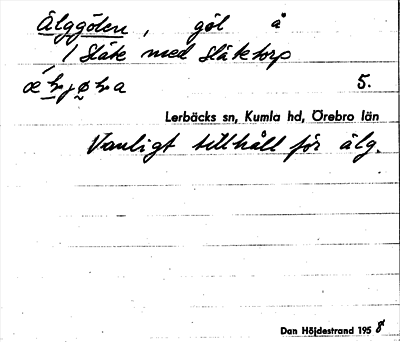 Älggölen, göl å
1 Släte med Slätetorp
5.
Lerbäcks sn, Kumla hd, Örebro län
Vanligt tillhåll för älg.
Dan Höjdestrand 1958